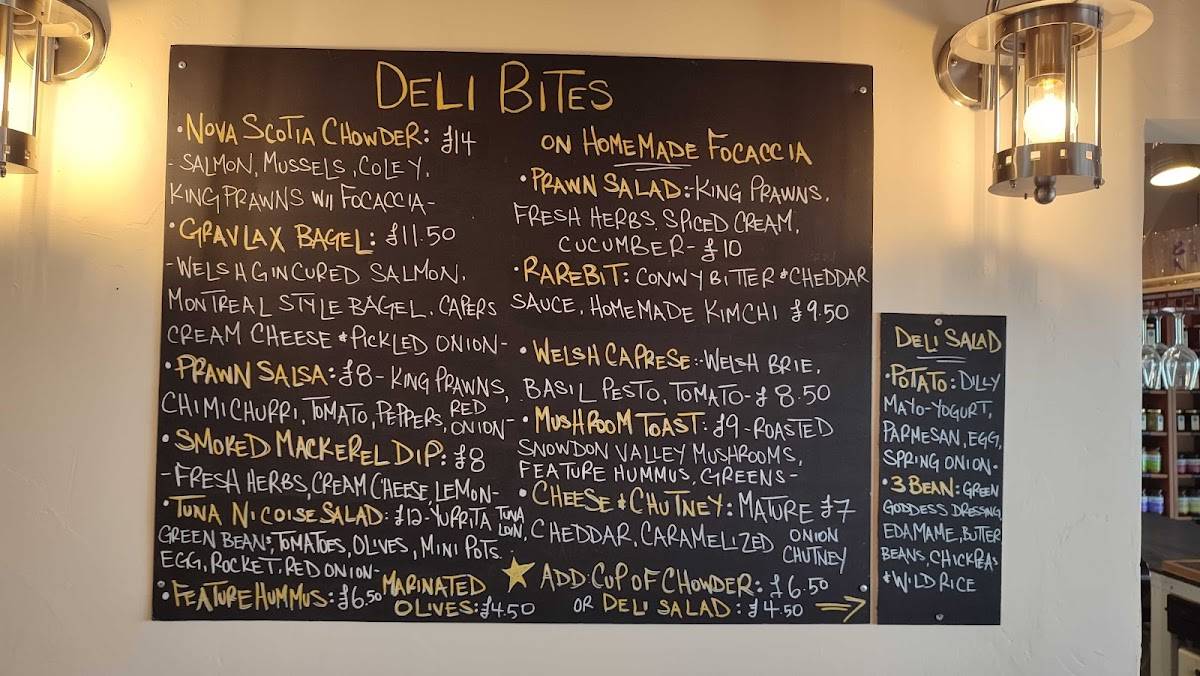 DELI BITES
• NOVA SCOTIA CHOWDER: £14
- SALMON, MUSSELS, COLEY,
KING PRAWNS W/ FOCACCIA -
• GRAVLAX BAGEL: £11.50
- WELSH GIN CURED SALMON,
MONTREAL STYLE BAGEL, CAPERS
CREAM CHEESE & PICKLED ONION -
• PRAWN SALSA: £8 - KING PRAWNS,
CHIMICHURRI, TOMATO, PEPPERS, RED ONION -
• SMOKED MACKEREL DIP: £8
- FRESH HERBS, CREAM CHEESE, LEMON -
• TUNA NICOISE SALAD: £12 - YUPRITA TUNA LOIN,
GREEN BEANS, TOMATOES, OLIVES, MINI POTS.
EGG, ROCKET, RED ONION -
• FEATURE HUMMUS: £6.50
MARINATED
OLIVES: £4.50
ON HOMEMADE FOCACCIA
• PRAWN SALAD: - KING PRAWNS,
FRESH HERBS, SPICED CREAM,
CUCUMBER - £10
• RAREBIT: CONWY BITTER & CHEDDAR
SAUCE, HOMEMADE KIMCHI £9.50
• WELSH CAPRESE: - WELSH BRIE,
BASIL PESTO, TOMATO - £8.50
• MUSHROOM TOAST: £9 - ROASTED
SNOWDON VALLEY MUSHROOMS,
FEATURE HUMMUS, GREENS -
• CHEESE & CHUTNEY: MATURE £7
CHEDDAR, CARAMELIZED ONION CHUTNEY
ADD: CUP OF CHOWDER: £6.50
OR DELI SALAD: £4.50
DELI SALAD
• POTATO: DILLY
MAYO-YOGURT,
PARMESAN, EGG,
SPRING ONION.
• 3 BEAN: GREEN
GODDESS DRESSING,
EDAMAME, BUTTER
BEANS, CHICKPEAS
& WILD RICE